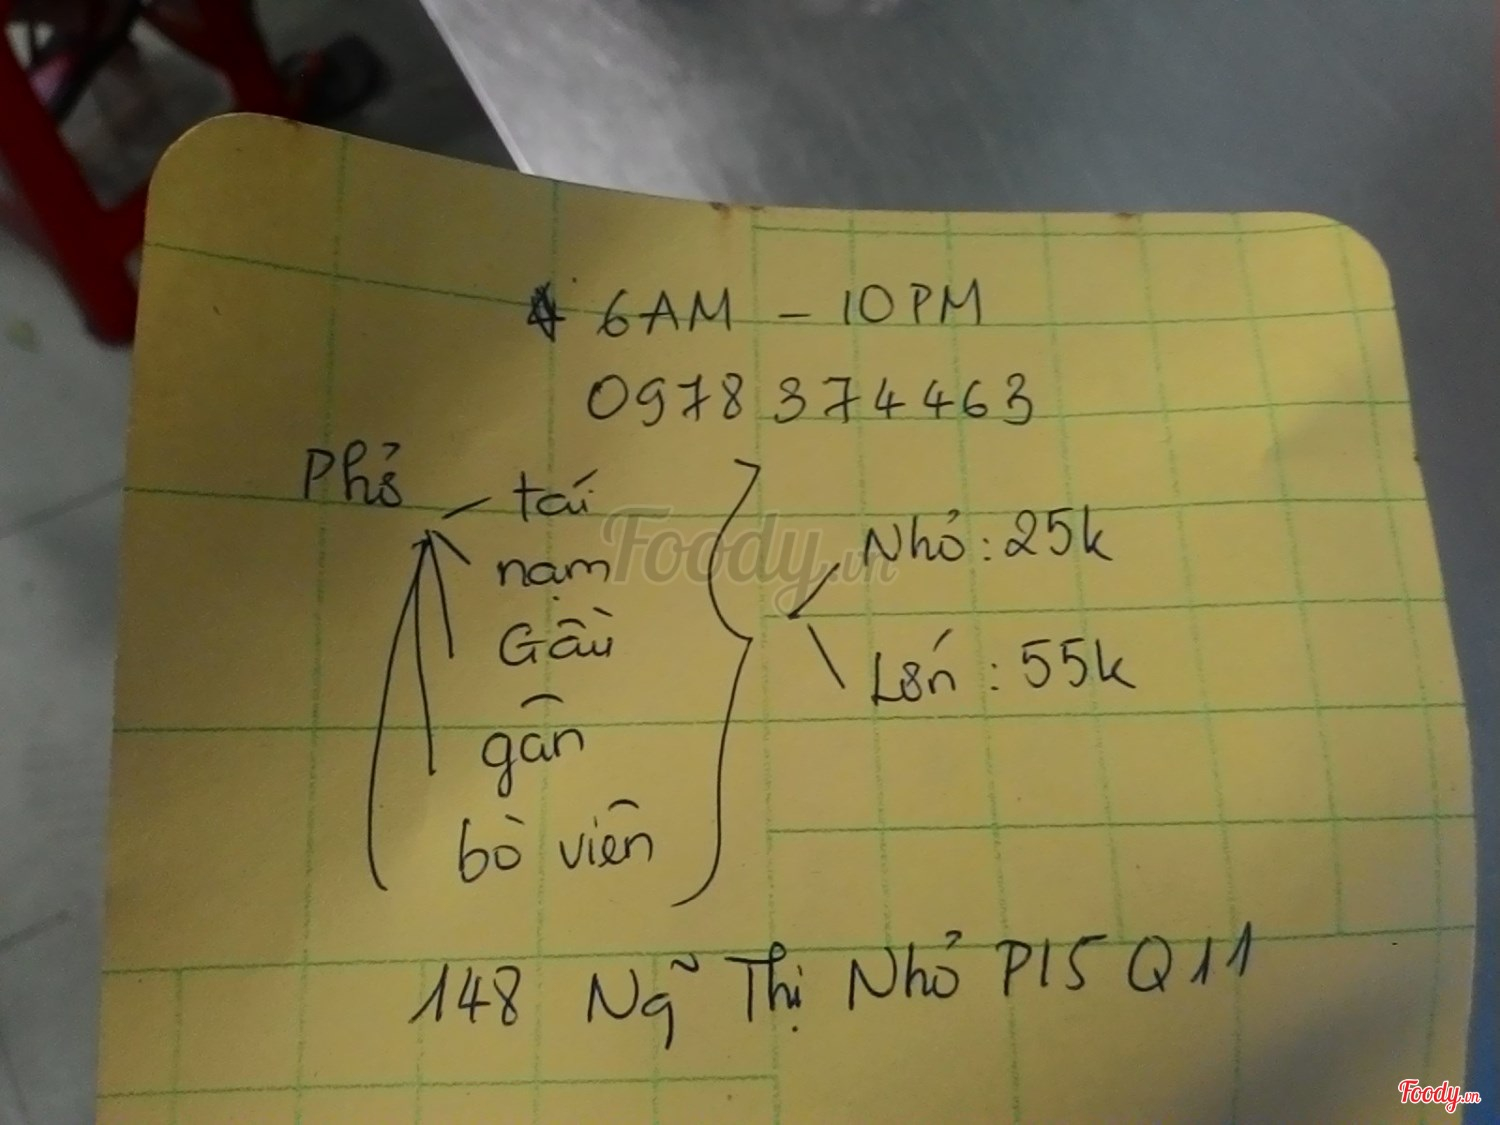 6AM - 10PM
0978 374463
Phở
tái
nạm
Gầu
gân
bò viên
Nhỏ : 25k
Lớn : 55k
148 Ngữ Thị Nhỏ P15 Q11
Foody.vn
Foody.vn